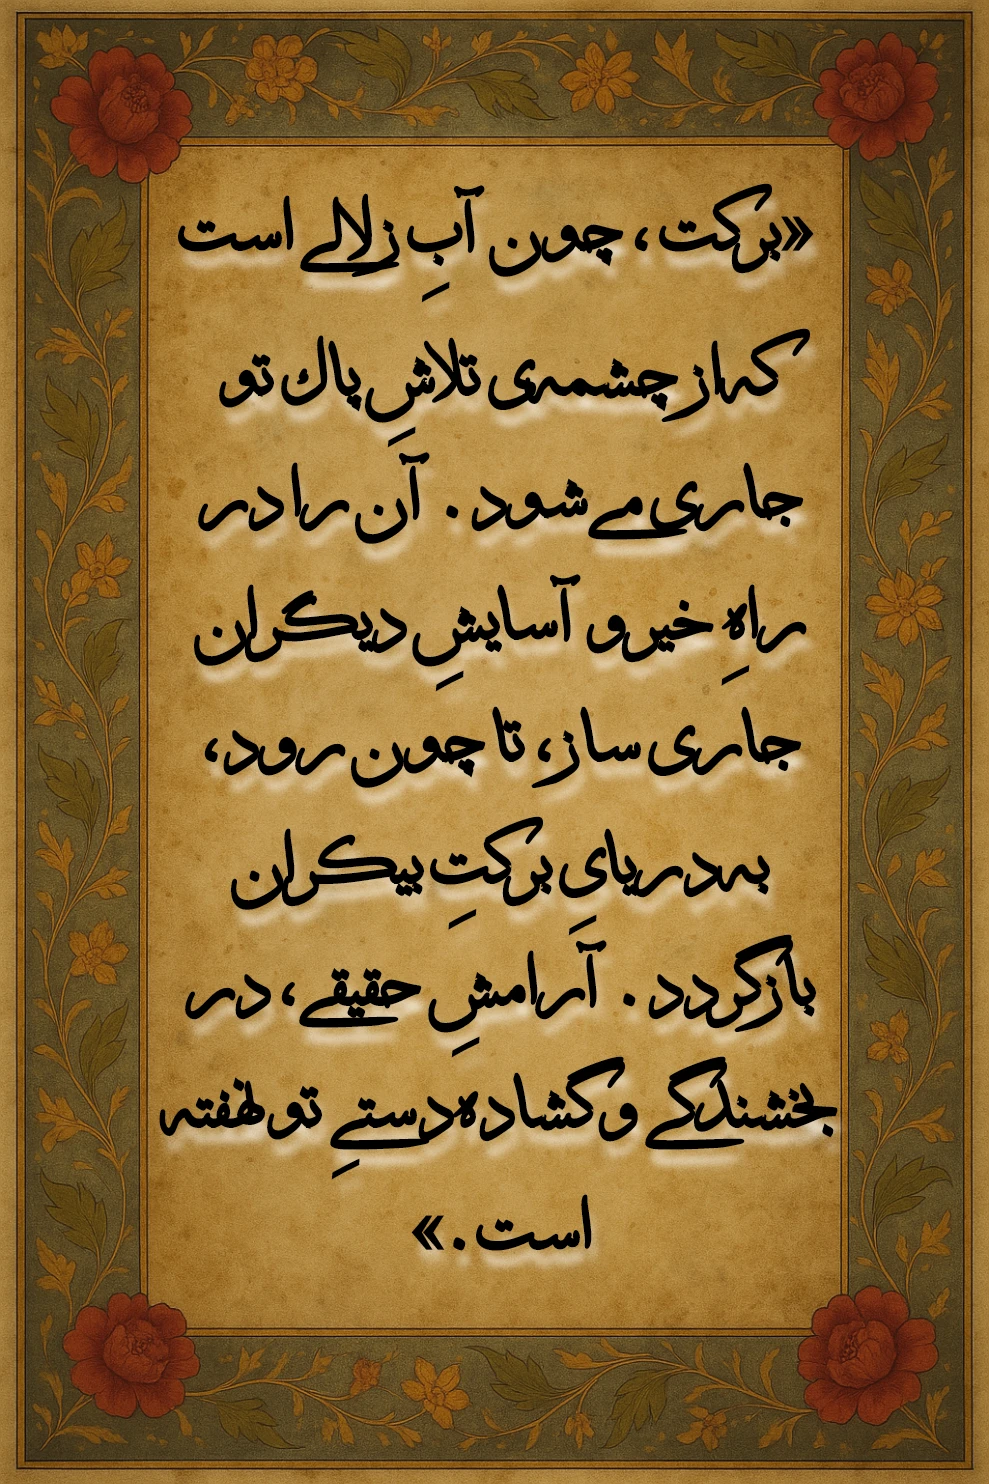 «برکت، چون آبِ زلالی است
که از چشمه‌ی تلاشِ پاک تو
جاری می‌شود. آن را در
راهِ خیر و آسایشِ دیگران
جاری ساز، تا چون رود،
به دریایِ برکتِ بیکران
بازگردد. آرامشِ حقیقی، در
بخشندگی و گشاده‌دستیِ تو نهفته
است.»